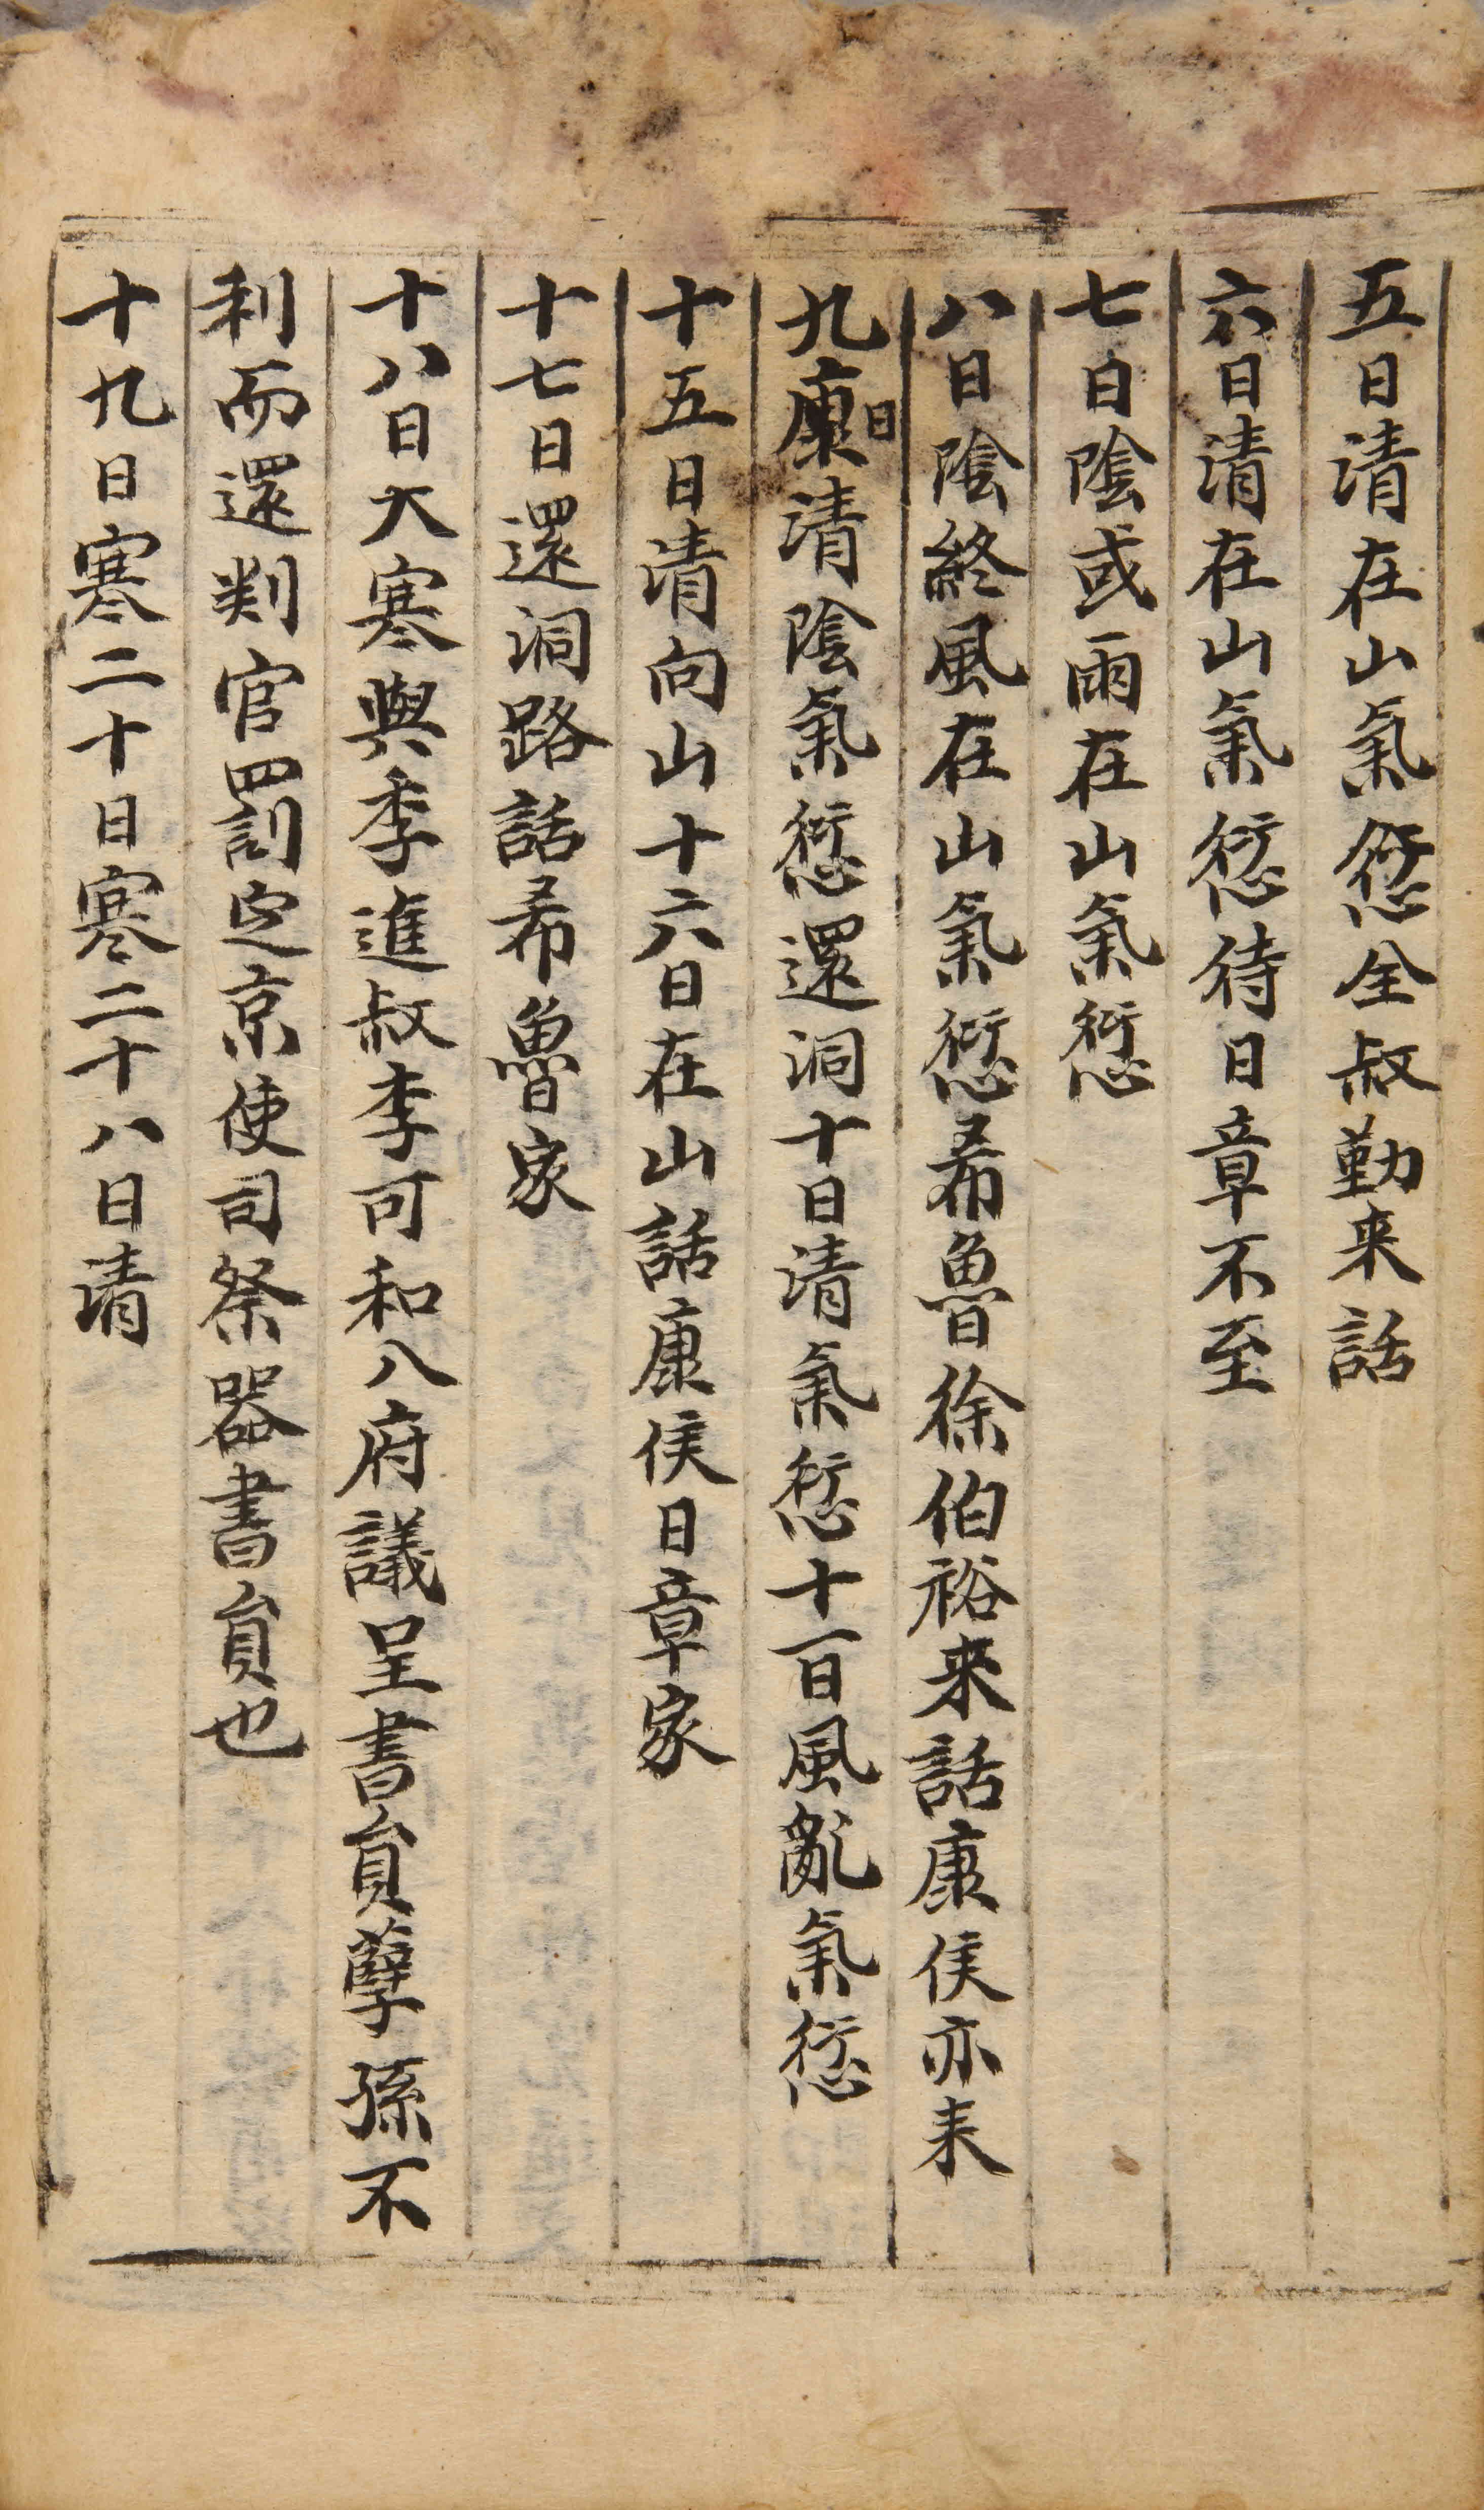 五日清在山氣愆全叔勤来話
六日清在山氣愆待日章不至
七日陰或雨在山氣愆
八日陰終風在山氣愆希魯徐伯裕来話康侯亦来
九康日清陰氣愆還洞十日清氣愆十一日風亂氣愆
十五日清向山十六日在山話康侯日章家
十七日還洞路話希魯家
十八日大寒與季進叔李可和入府議呈書負孽孫不
利而還判官罰定京使司祭器書負也
十九日寒二十日寒二十八日清